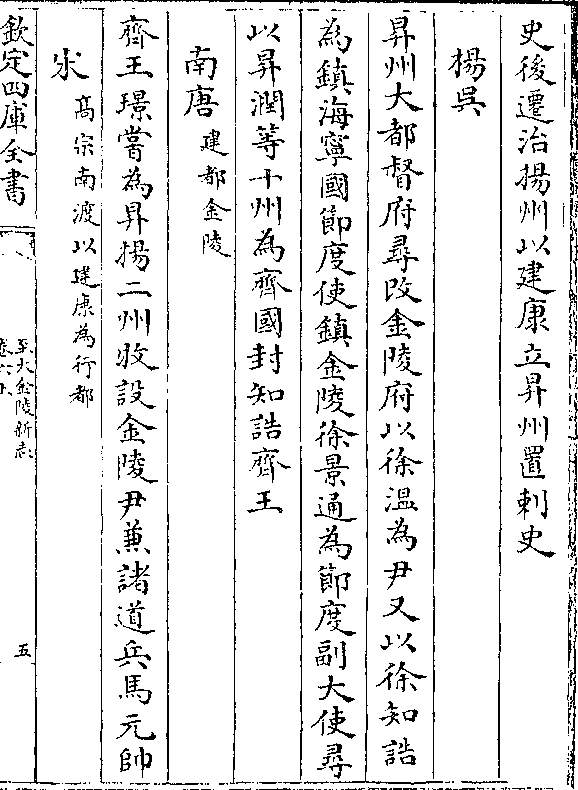 史後遷治揚州以建康立昇州置刺史
楊吳
昇州大都督府尋改金陵府以徐溫為尹又以徐知誥
為鎮海寧國節度使鎮金陵徐景通為節度副大使尋
以昇潤等十州為齊國封知誥齊王
南唐建都金陵
齊王璟嘗為昇揚二州牧設金陵尹兼諸道兵馬元帥
宋高宗南渡以建康為行都
欽定四庫全書
至大金陵新志
卷六上
五